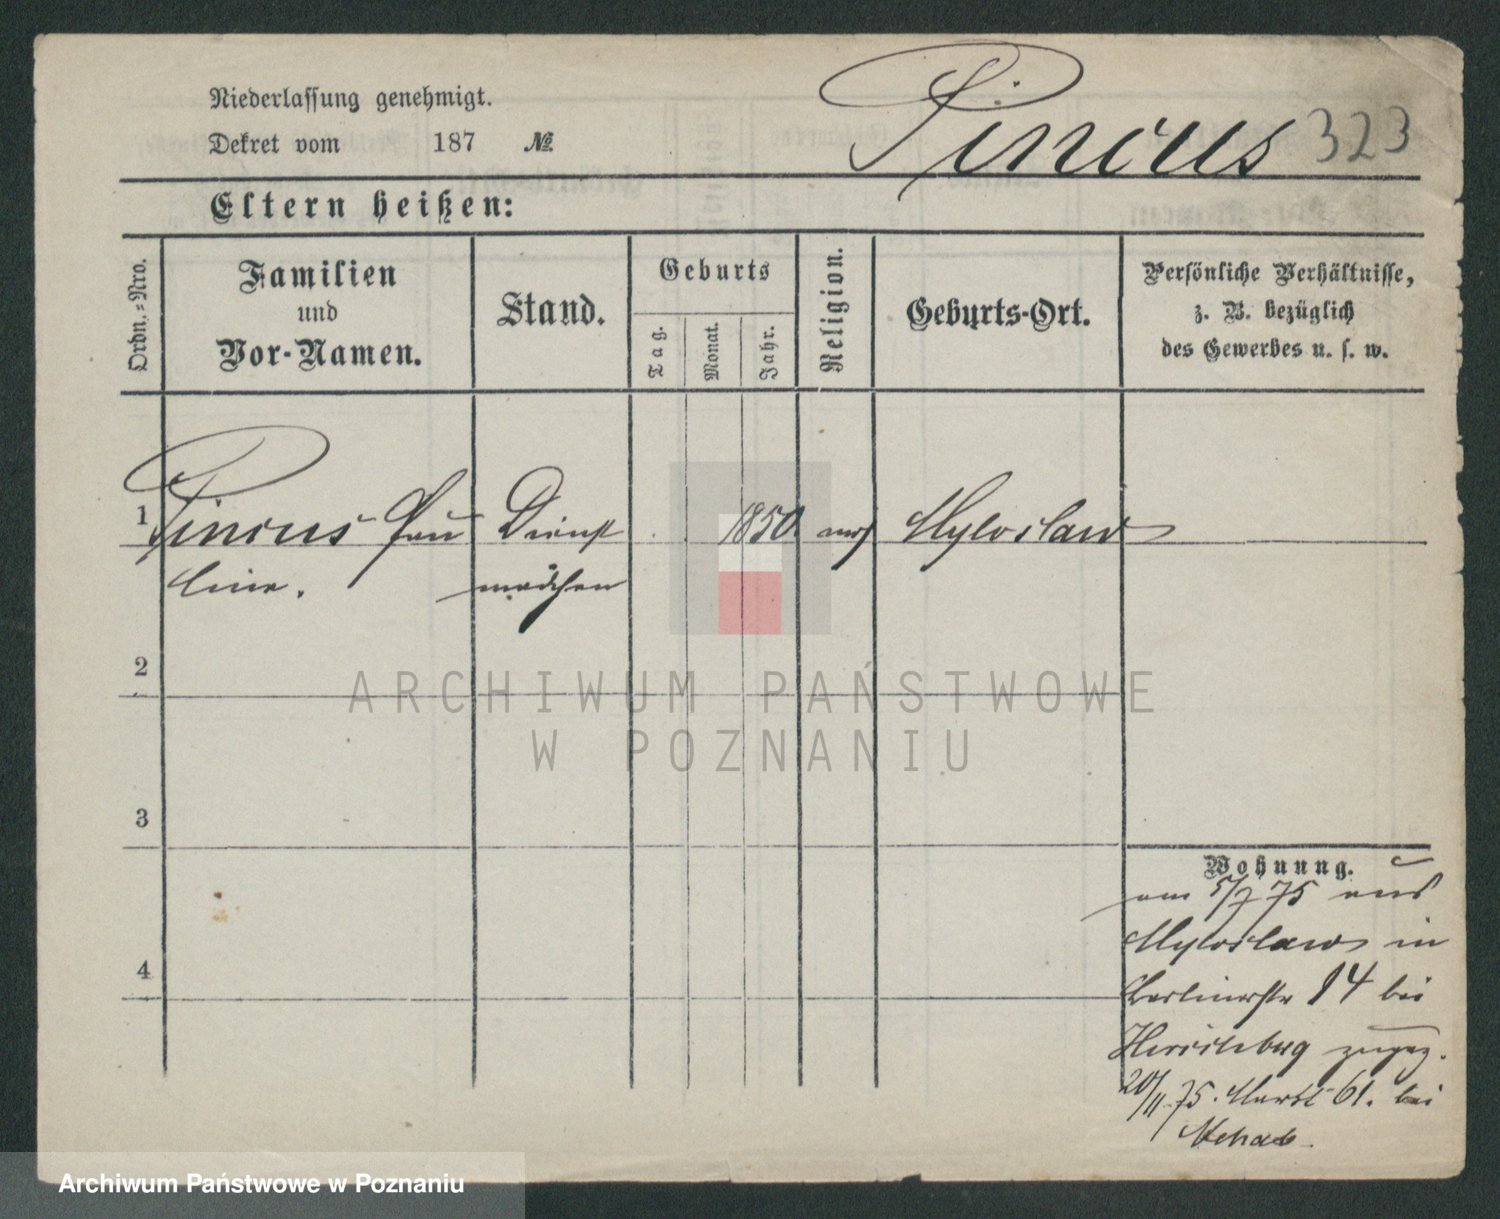 Niederlassung genehmigt.
Dekret vom 187 №
Pincus 323
Eltern heißen:
Ordn.-Nro.
Familien
und
Vor-Namen.
Stand.
Geburts
Tag.
Monat.
Jahr.
Religion.
Geburts-Ort.
Persönliche Verhältnisse,
z. B. bezüglich
des Gewerbes u. s. w.
1 Pincus Pau Dienst 1850 mos Myloslaw
line. mädchen
2
3
4
Wohnung.
am 5/7 75 aus
Myloslaw in
Berlinerstr 14 bei
Hirschberg zugez.
20/11 75. Markt 61. bei
ARCHIWUM PAŃSTWOWE
W POZNANIU
Archiwum Państwowe w Poznaniu